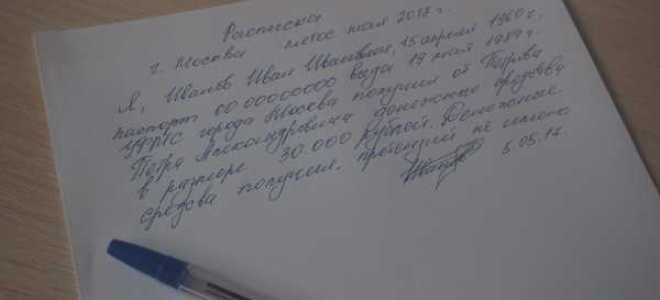 Расписка
г. Москва мая 2017 г.
Я, Иванов Иван Иванович, 15 апреля 1960 г.
паспорт 00 00000000 выдан 19 мая 1989 г.
УФМС города Москва получил от Петрова
Петра Александровича денежные средства
в размере 30.000 рублей. Денежные
средства получил, претензий не имею
5.05.17